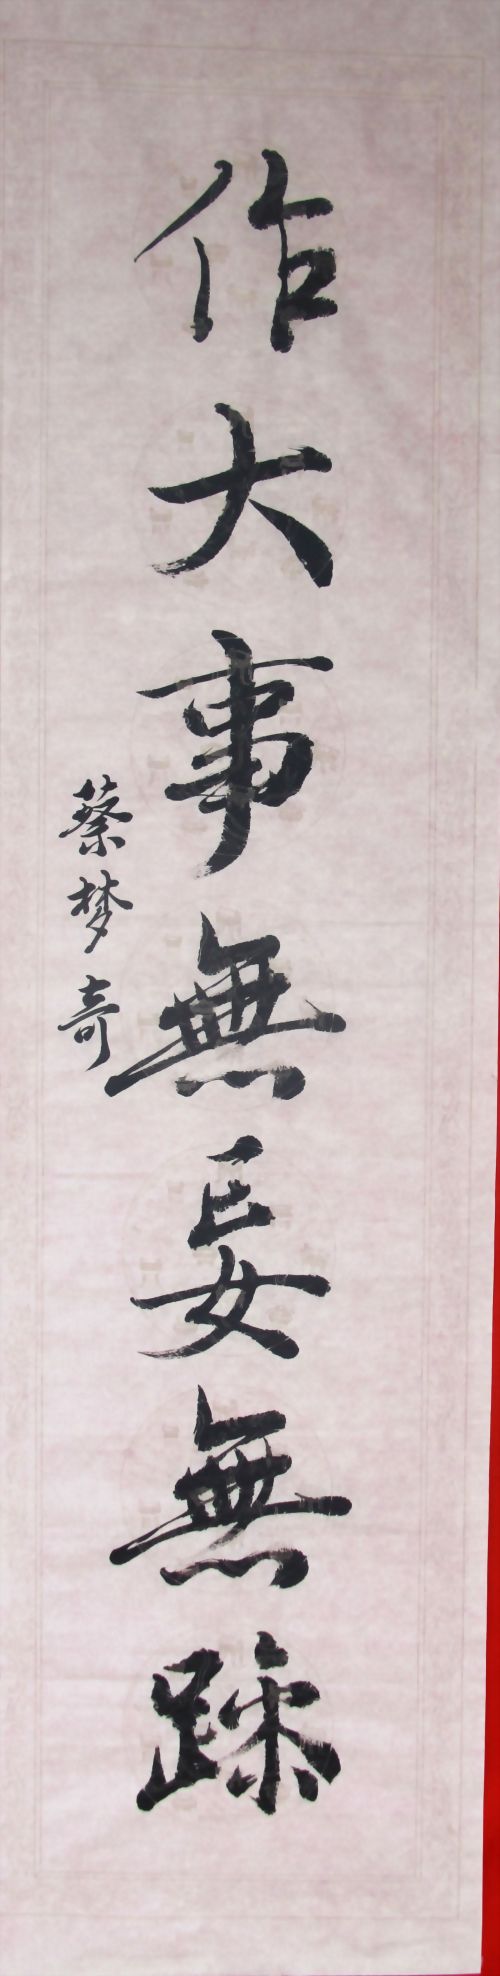 作大事無妄無踈
蔡梦奇